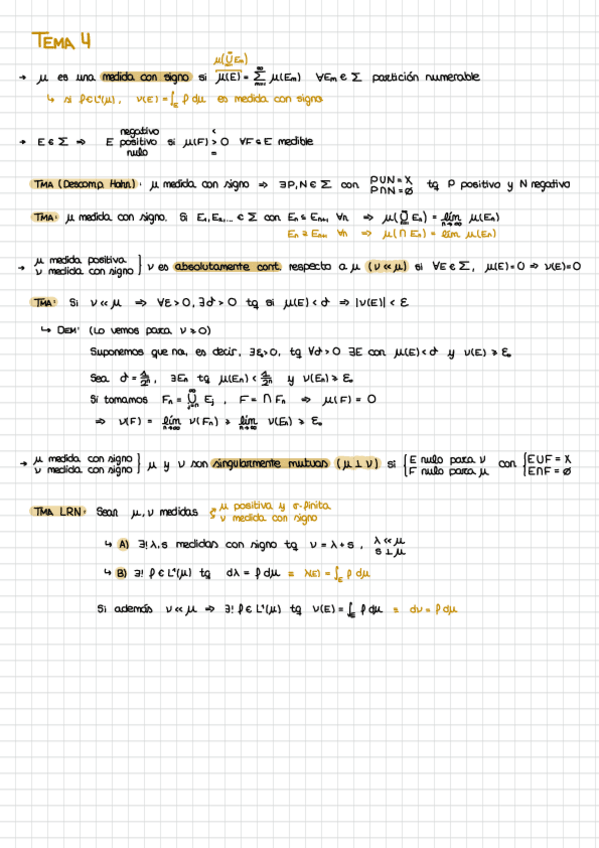 TEMA 4
μ(⋃Eₙ)
→ μ es una medida con signo si μ(E) = ∑ μ(Eₘ) ∀Eₘ ∈ Σ partición numerable
↳ si f ∈ L¹(μ), ν(E) = ∫_E f dμ es medida con signo
negativo <
→ E ∈ Σ ⇒ E positivo si μ(F) > 0 ∀F ⊆ E medible
nulo =
TMA (Descomp. Hahn): μ medida con signo ⇒ ∃P, N ∈ Σ con P∪N = X P∩N = ∅ tq P positivo y N negativo
TMA: μ medida con signo. Si E₁, E₂, ... ∈ Σ con Eₙ ⊆ Eₙ₊₁ ∀n ⇒ μ(⋃ Eₙ) = lím μ(Eₙ)
Eₙ ⊇ Eₙ₊₁ ∀n ⇒ μ(⋂ Eₙ) = lím μ(Eₙ)
μ medida positiva
→ ν medida con signo ] ν es absolutamente cont. respecto a μ (ν << μ) si ∀E ∈ Σ, μ(E) = 0 ⇒ ν(E) = 0
TMA: Si ν << μ ⇒ ∀ε > 0, ∃δ > 0 tq si μ(E) < δ ⇒ |ν(E)| < ε
↳ DEM: (Lo vemos para ν ≥ 0)
Suponemos que no, es decir, ∃ε₀ > 0, tq ∀δ > 0 ∃E con μ(E) < δ y ν(E) ≥ ε₀
Sea δ = 1/2ⁿ, ∃Eₙ tq μ(Eₙ) < 1/2ⁿ y ν(Eₙ) ≥ ε₀
Si tomamos Fₙ = ⋃ Eⱼ, F = ⋂ Fₙ ⇒ μ(F) = 0
⇒ ν(F) = lím ν(Fₙ) ≥ lím ν(Eₙ) ≥ ε₀
→ μ medida con signo
ν medida con signo ] μ y ν son singularmente mutuas (μ ⊥ ν) si { E nulo para ν F nulo para μ con { E∪F = X E∩F = ∅
TMA LRN: Sean μ, ν medidas μ positiva y σ-finita
ν medida con signo
↳ A) ∃! λ, s medidas con signo tq ν = λ + s, λ << μ s ⊥ μ
↳ B) ∃! f ∈ L¹(μ) tq dλ = f dμ ≡ λ(E) = ∫_E f dμ
Si además ν << μ ⇒ ∃! f ∈ L¹(μ) tq ν(E) = ∫_E f dμ ≡ dν = f dμ